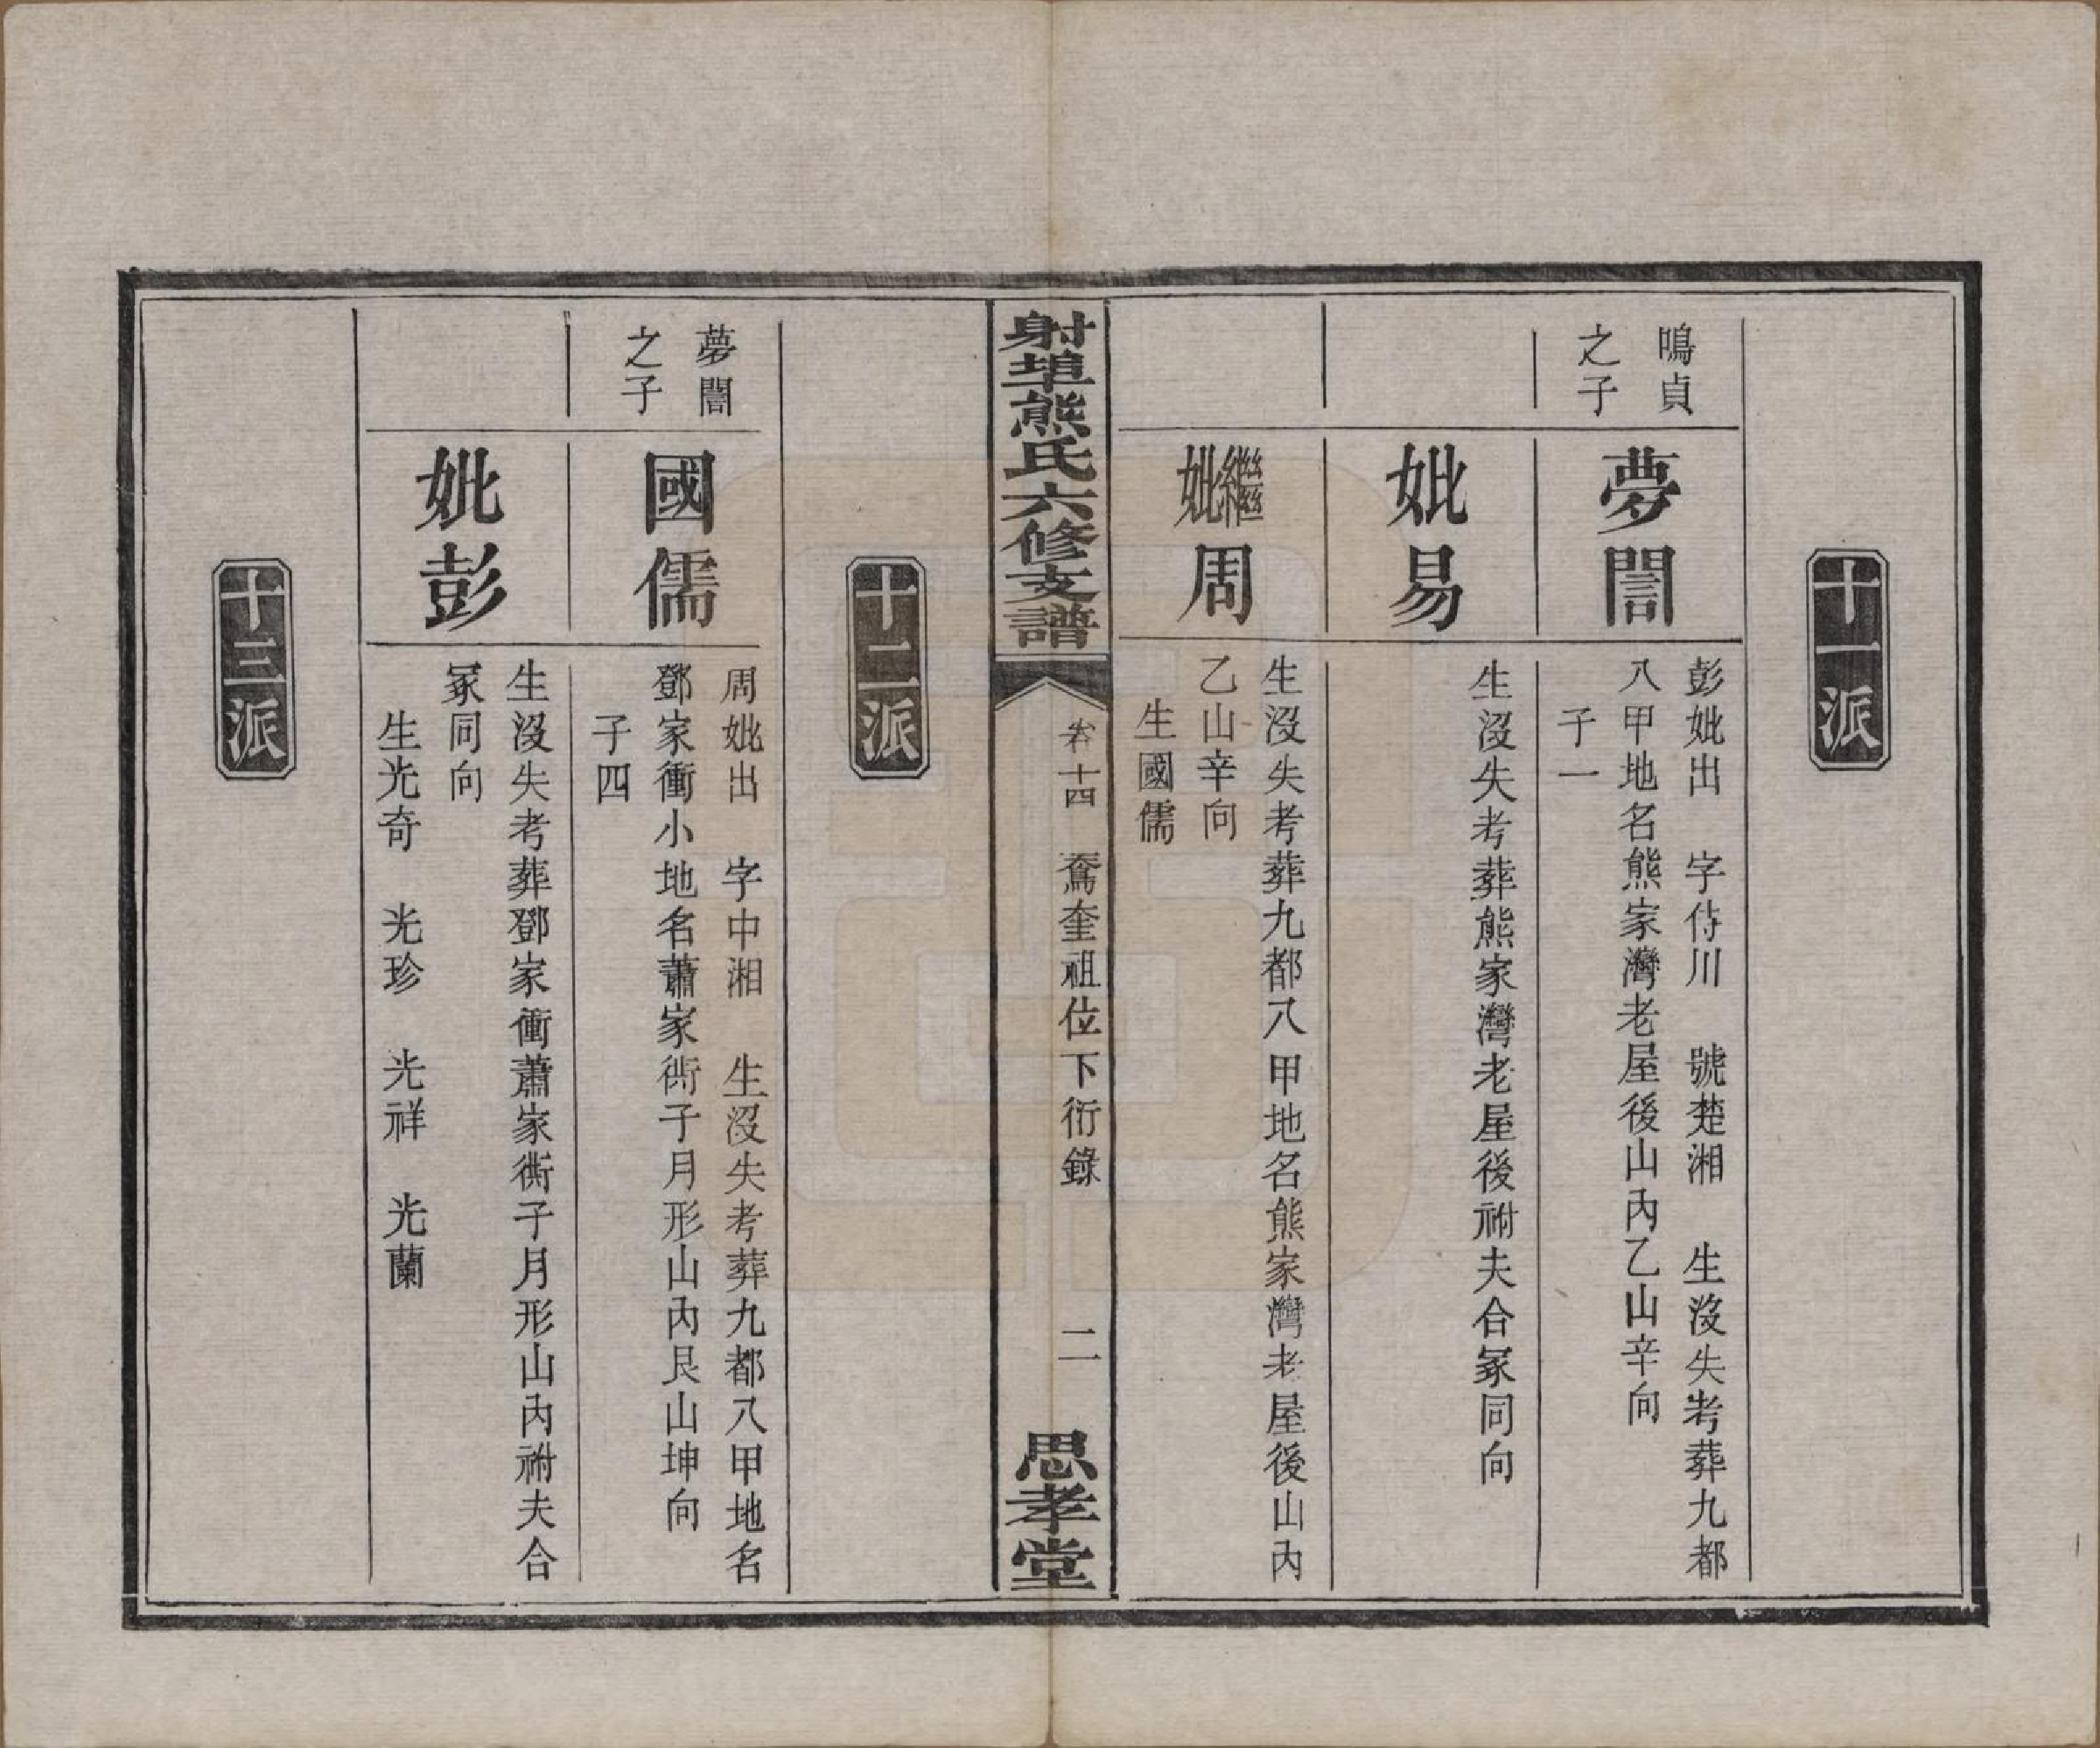 十一派
鳴貞
之子
夢誾
彭妣出　字侍川　號楚湘　生沒失考葬九都
八甲地名熊家灣老屋後山內乙山辛向
子一
妣易
生沒失考葬熊家灣老屋後祔夫合冢同向
繼妣周
生沒失考葬九都八甲地名熊家灣老屋後山內
乙山辛向
生國儒
射埠熊氏六修支譜
卷十四　奎祖位下衍錄　二
思孝堂
十二派
夢誾
之子
國儒
周妣出　字中湘　生沒失考葬九都八甲地名
鄧家衝小地名蕭家衖子月形山內艮山坤向
子四
妣彭
生沒失考葬鄧家衝蕭家衖子月形山內祔夫合
冢同向
生光奇　光珍　光祥　光蘭
十三派